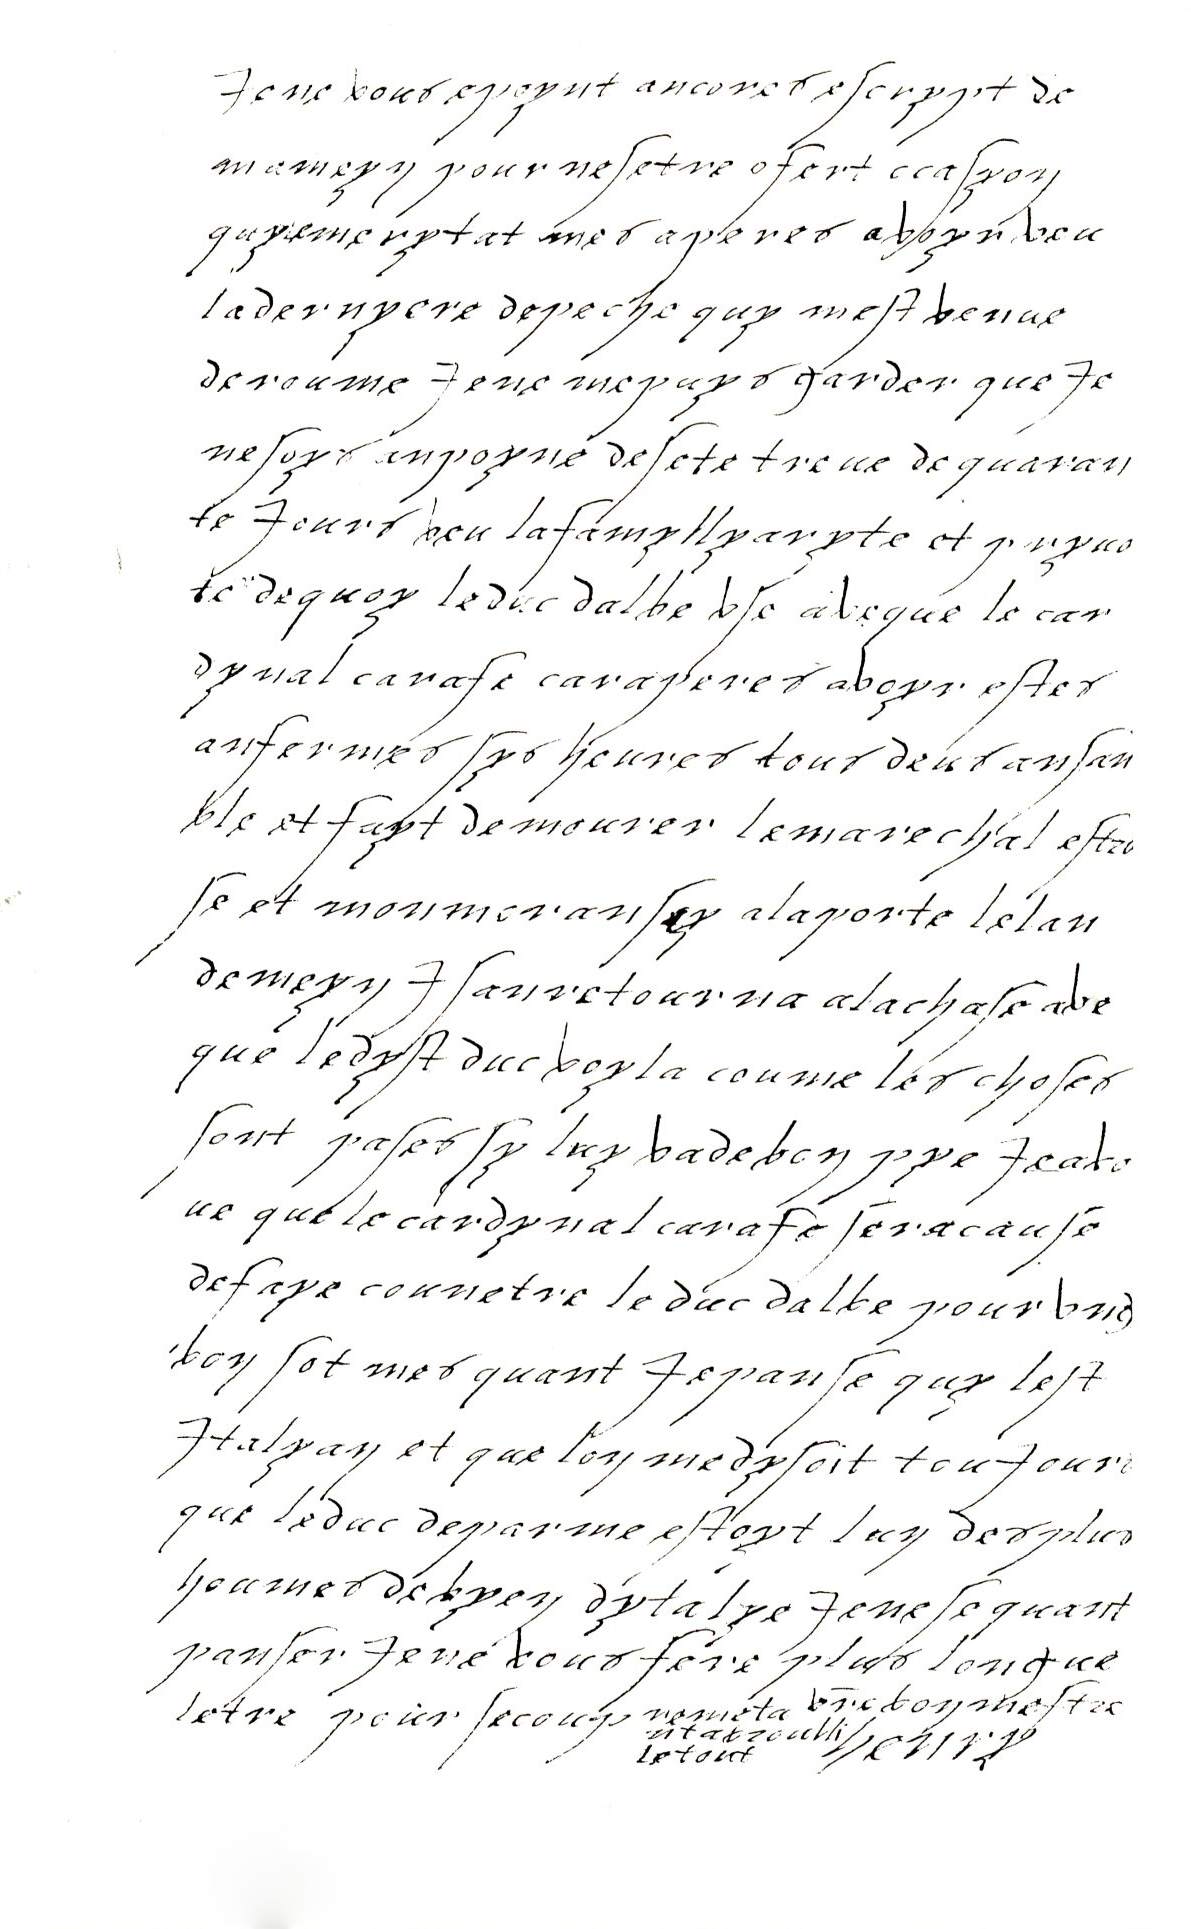 Je ne vous e poynt ancores escrypt de
ma meyn pour ne setre ofert ocasyon
quy me merytat mes aperes avoyr veu
la dernyere depeche quy mest venue
de roume Je ne me puys garder que Je
ne soys an poyne de sete treue de quaran
te Jours veu la famyllyaryte et pryuo
te de quoy le duc dalbe vse aveque le car
dynal carafe car aperes avoyr estes
anfermes sys heures tous deus ansan
ble et fayt demourer le marechal estro
se et monmoransy a la porte lelan
demeyn I san retourna a la chase ave
que ledyst duc voyla coume les choses
sont pases sy luy va de bon pye Je avo
ue que le cardynal carafe sera cause
de faye counetre le duc dalbe pour vng
bon sot mes quant Je panse quy lest
Italyan et que lon me dysoit touJours
que le duc de parme estoyt lun des plus
houmes de byen dytalye Je ne se quant
panser Je ne vous fere plus longue
letre pour se coup remeta vre bon mestre
nt a bzoulli Henry
le tout